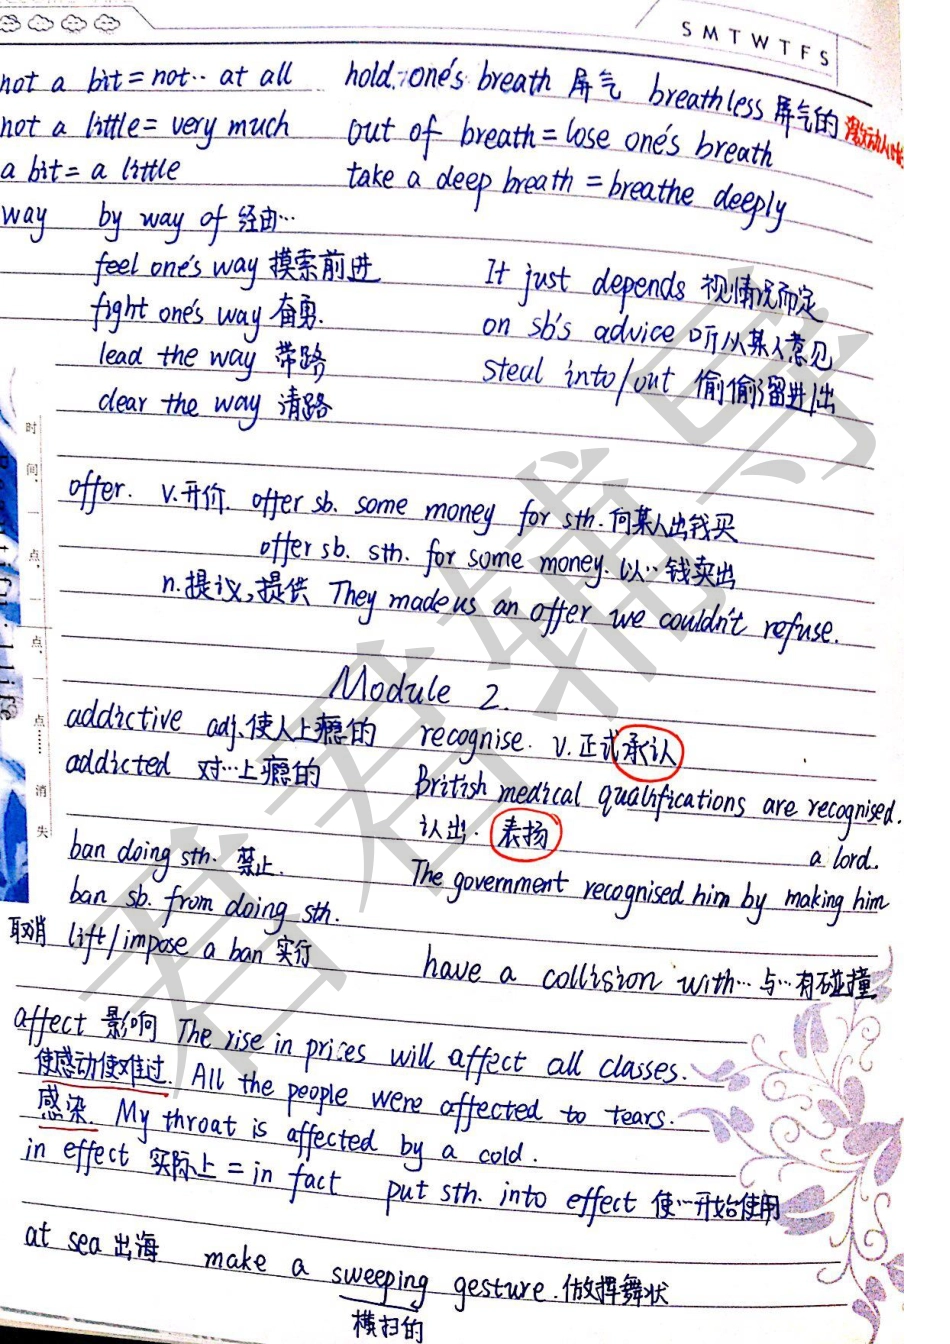 S M T W T F S
not a bit = not·· at all hold one's breath 屏气 breathless 屏气的
not a little = very much out of breath = lose one's breath
a bit = a little take a deep breath = breathe deeply
way by way of 经由…
feel one's way 摸索前进 It just depends 视情况而定
fight one's way 奋勇. on sb's advice 听从某人意见
lead the way 带路 steal into/out 偷偷溜进/出
clear the way 清路
时间,一点,一点,一点……消失
life
offer. v.开价. offer sb. some money for sth. 向某人出钱买
offer sb. sth. for some money. 以··钱卖出
n.提议,提供 They made us an offer we couldn't refuse.
Module 2.
addictive adj.使人上瘾的 recognise. v.正式承认
addicted 对…上瘾的 British medical qualifications are recognised.
认出. 表扬 a lord.
ban doing sth. 禁止. The government recognised him by making him
ban sb. from doing sth.
取消 lift/impose a ban 实行 have a collision with… 与…有碰撞
affect 影响 The rise in prices will affect all classes.
使感动使难过. All the people were affected to tears.
感染. My throat is affected by a cold.
in effect 实际上 = in fact put sth. into effect 使…开始使用
at sea 出海 make a sweeping gesture. 做挥舞状
横扫的
君君辅导